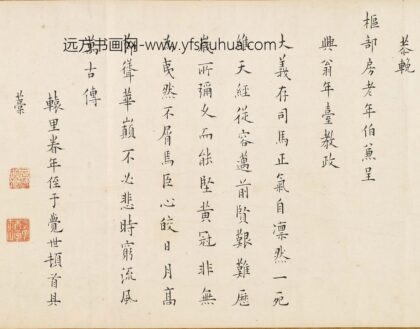 恭輓
樞部房老年伯兼呈
興翁年臺教政
大義存司馬正氣自凜然一死
維天經從容邁前賢艱難歷
歲所彌久而能堅黃冠非無
為夷然不屑馬臣心皎日月高
節聳華巔不必悲時窮流風
萬古傳
轅里眷年侄于覺世頓首具
藁
远方书画网- www.yfshuhua.com